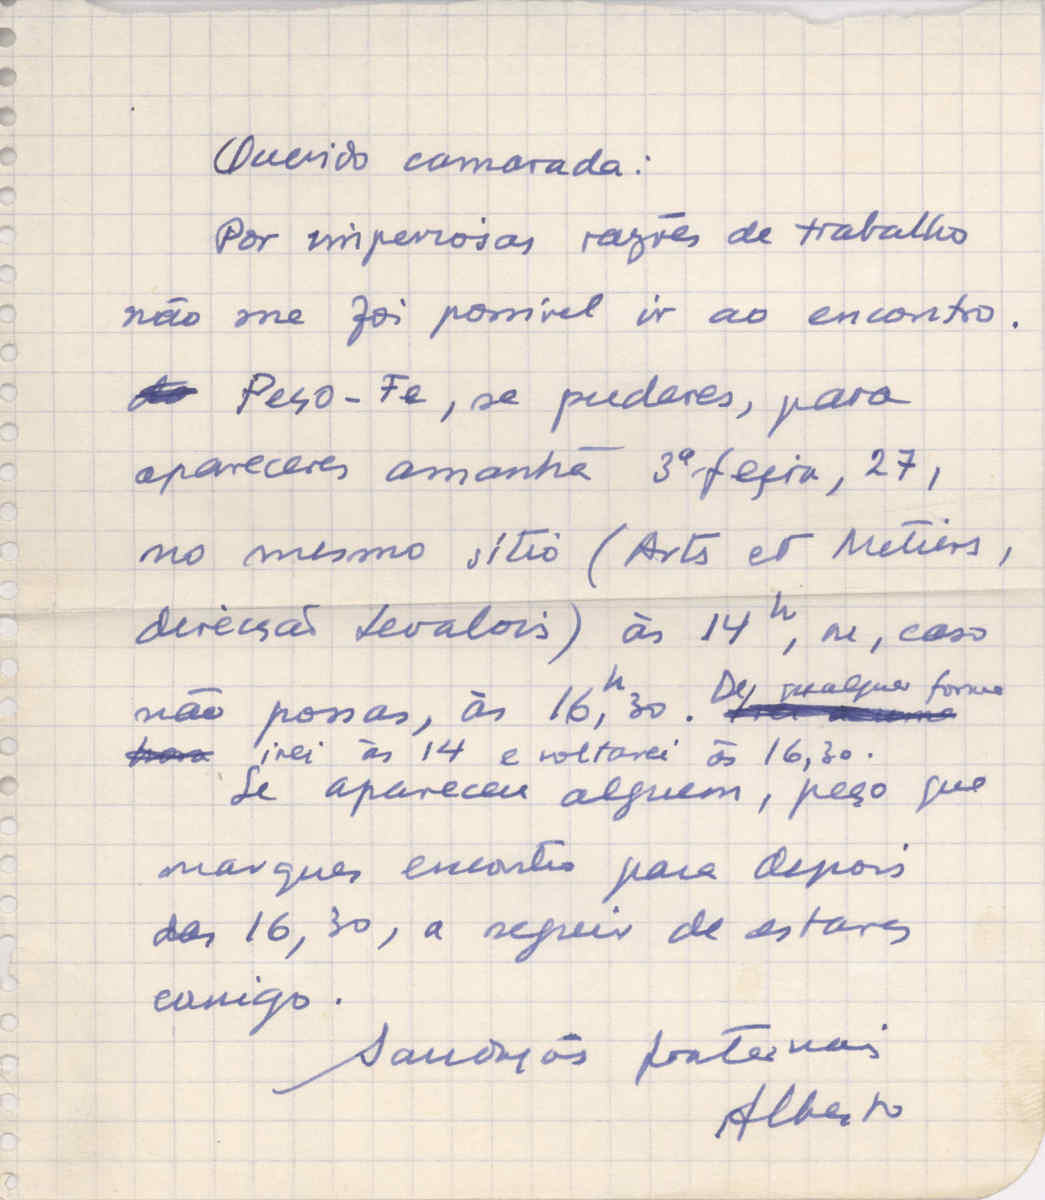 Querido camarada:
Por imperiosas razões de trabalho
não me foi possível ir ao encontro.
Peço-Te, se puderes, para
apareceres amanhã 3ª feira, 27,
no mesmo sítio (Arts et Métiers,
direcção Levalois) às 14h, ou, caso
não possas, às 16,h30. De qualquer forma
irei às 14 e voltarei às 16,30.
Se apareceu alguem, peço que
marques encontro para depois
das 16,30, a seguir de estares
comigo.
Saudações fraternais
Alberto